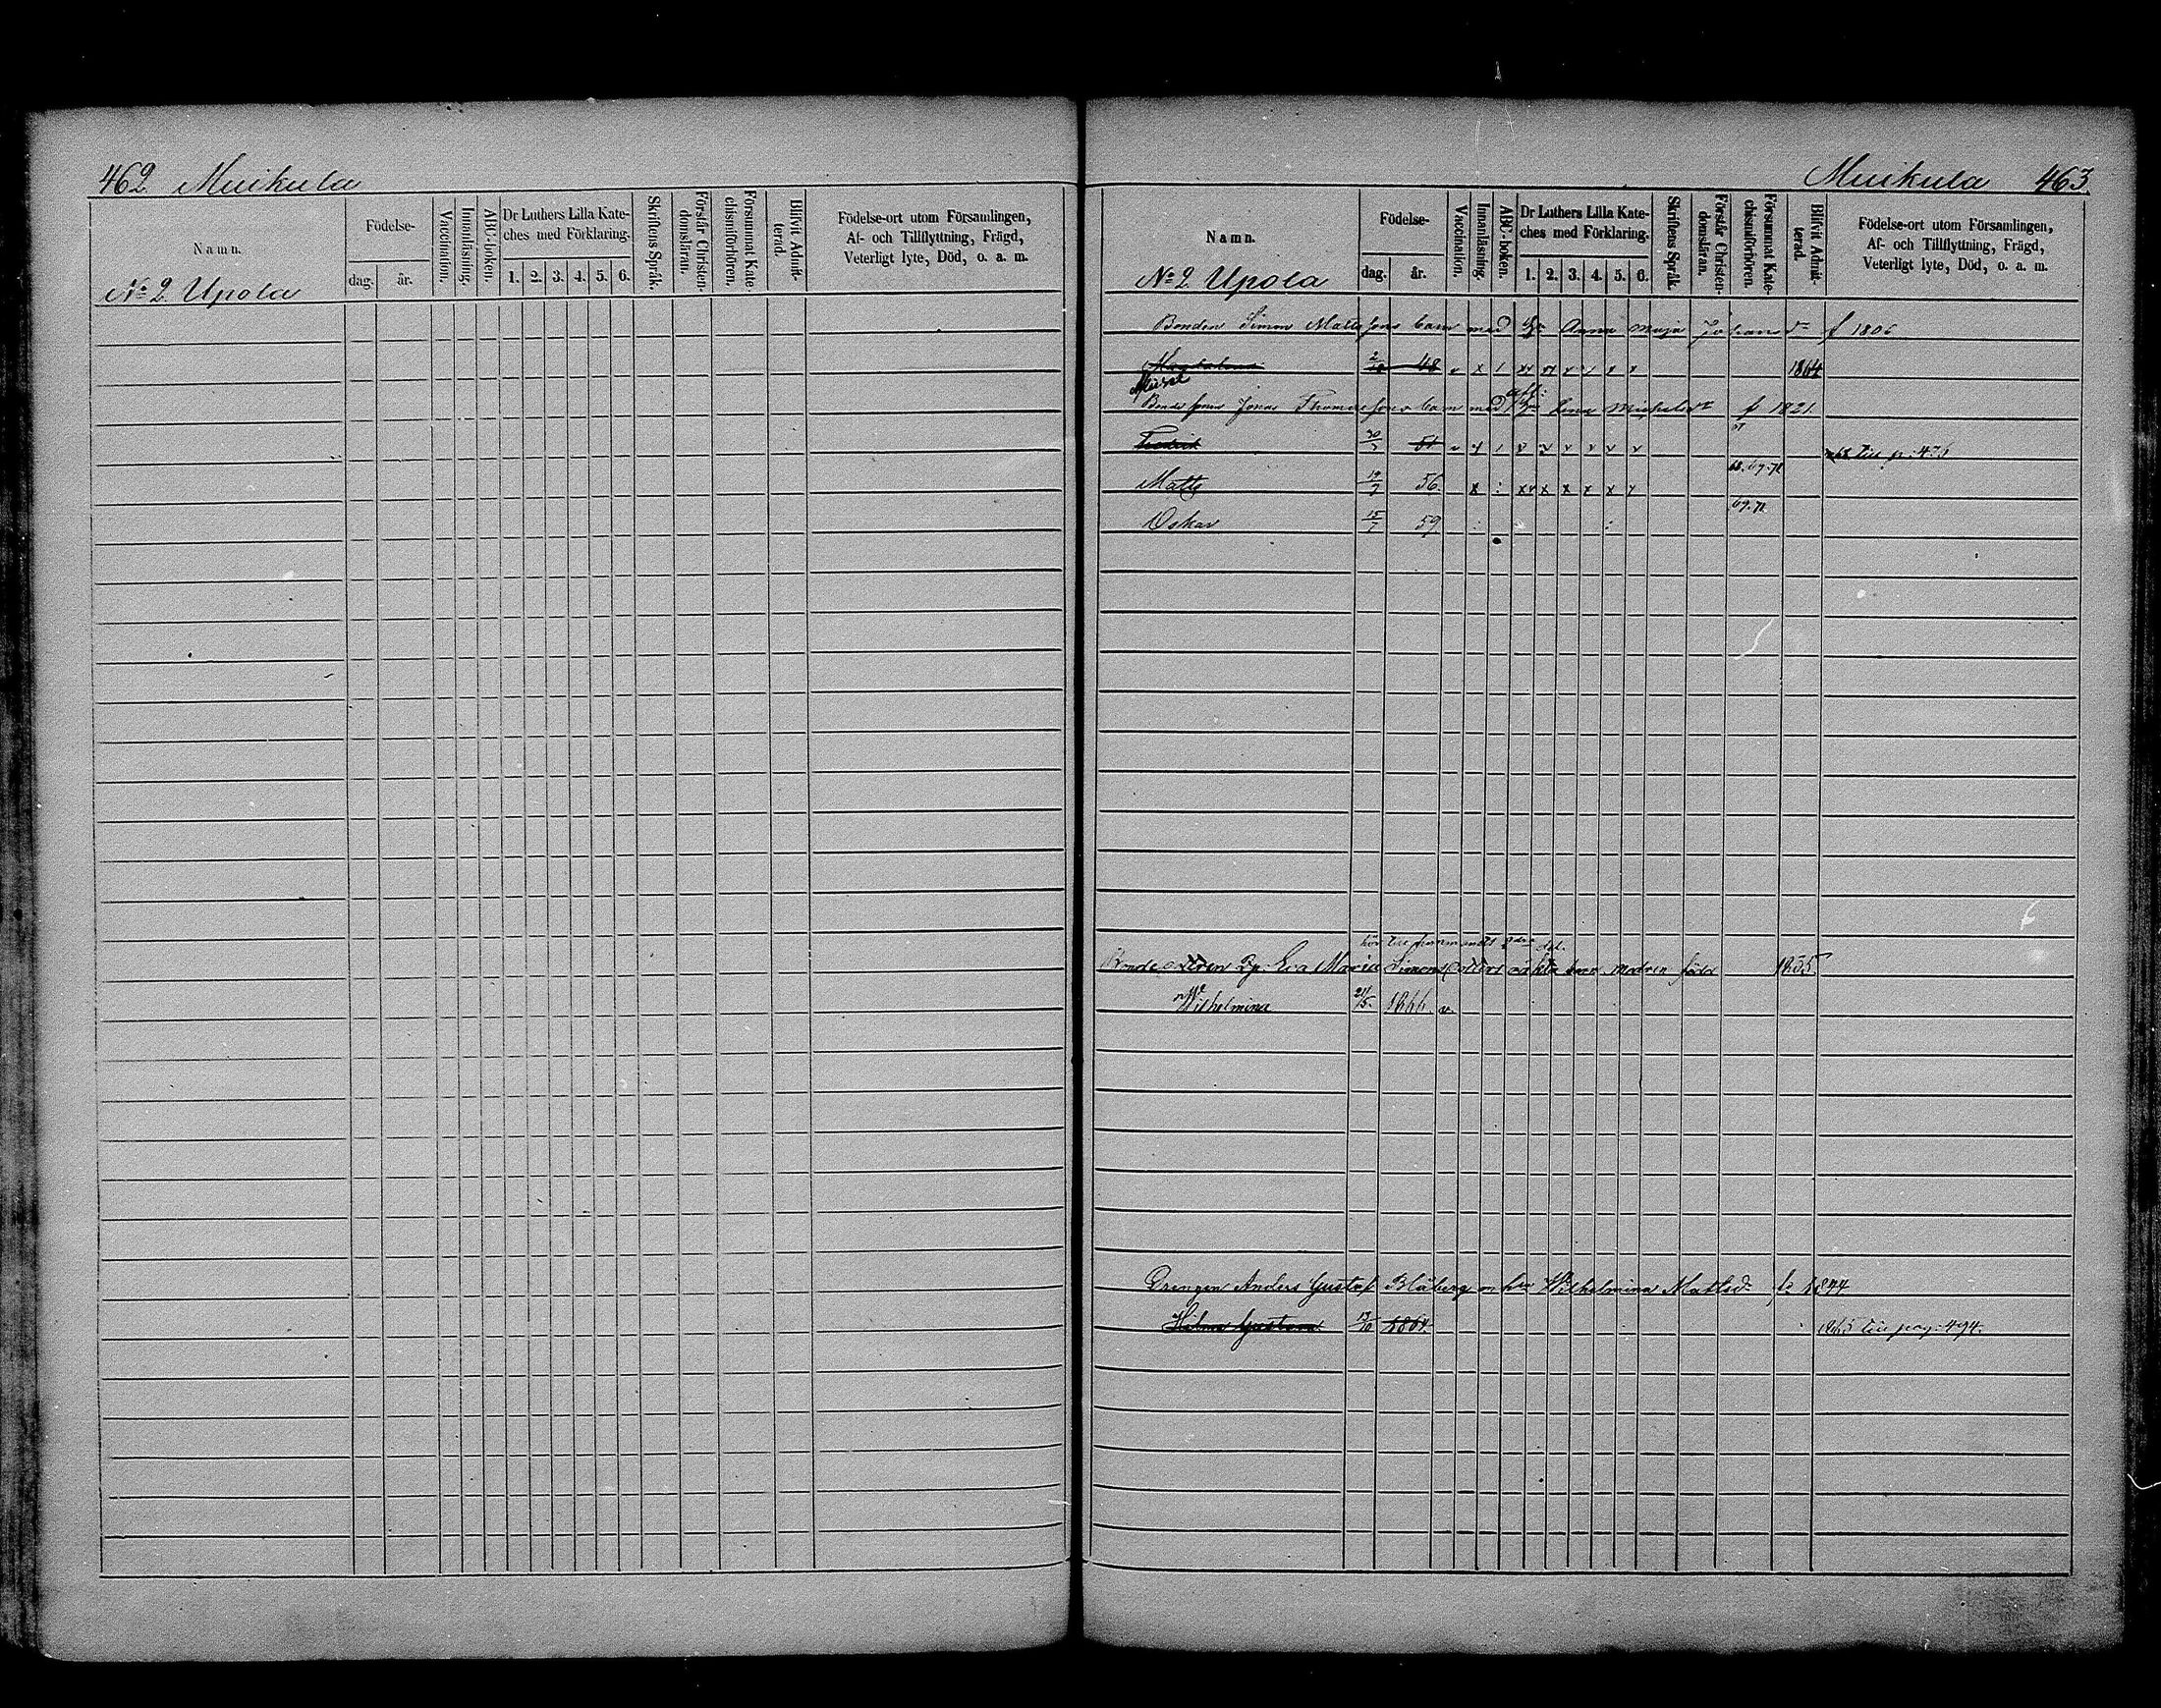 462 Muikula
Namn.
Födelse-
dag. år.
Vaccination.
Innanläsning.
ABC-boken.
Dr Luthers Lilla Kate-
ches med Förklaring.
1. 2. 3. 4. 5. 6.
Skriftens Språk.
Förstår Christen-
domsläran.
Försummat Kate-
chismiförhören.
Blifvit Admit-
terad.
Födelse-ort utom Församlingen,
Af- och Tillflyttning, Frägd,
Veterligt lyte, Död, o. a. m.
No 2 Upola
Muikula 463
Namn.
Födelse-
dag. år.
Vaccination.
Innanläsning.
ABC-boken.
Dr Luthers Lilla Kate-
ches med Förklaring.
1. 2. 3. 4. 5. 6.
Skriftens Språk.
Förstår Christen-
domsläran.
Försummat Kate-
chismiförhören.
Blifvit Admit-
terad.
Födelse-ort utom Församlingen,
Af- och Tillflyttning, Frägd,
Veterligt lyte, Död, o. a. m.
No 2 Upola
Bonden Simon Mattssons barn med Anna Maja Johansdr f 1806
Magdalena 48 v x 1864
Jonas Thomassons barn med Lena Michelsdr f 1821
Fredrik 51 till p. 476
68. 69. 70
Matts 56
69. 70
Oskar 15/7 59
hör till hemmanets dra del.
Bondedottren Eva Maria Simonsdotters oäkta barn modren född 1835
Wilhelmina 21/5. 1866. v.
Drengen Anders Gustaf Blåberg m hu Wilhelmina Mattsdr fr 1844
Hilma Gustava 13/10 1864. 1865 till pag: 494.